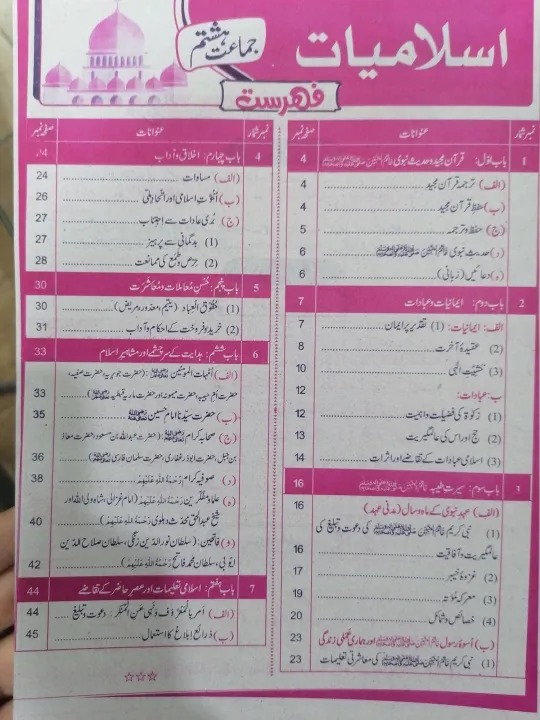 اسلامیات
جماعت ہشتم
فہرست
نمبر شمار عنوانات صفحہ نمبر
1 باب اوّل: قرآن مجید و حدیث نبوی خاتم النبیین صلی اللہ علیہ وآلہ واصحابہ وسلم 4
(الف) ترجمہ قرآن مجید 4
(ب) حفظ قرآن مجید 4
(ج) حفظ و ترجمہ 5
(د) حدیث نبوی خاتم النبیین صلی اللہ علیہ وآلہ واصحابہ وسلم 6
(ہ) دعائیں (زبانی) 6
2 باب دوم: ایمانیات و عبادات 7
الف: ایمانیات: (1) تقدیر پر ایمان 7
(2) عقیدۂ آخرت 8
(3) خشیتِ الٰہی 10
ب: عبادات: 12
(1) زکوٰۃ کی فضیلت و اہمیت 12
(2) حج اور اس کی عالمگیریت 13
(3) اسلامی عبادات کے تقاضے اور اثرات 14
3 باب سوم: سیرت طیبہ خاتم النبیین صلی اللہ علیہ وآلہ واصحابہ وسلم 16
(الف) عہد نبوی کے ماہ و سال (مدنی عہد) 16
(1) نبی کریم خاتم النبیین صلی اللہ علیہ وآلہ واصحابہ وسلم کی دعوت و تبلیغ کی
عالمگیریت و آفاقیت 16
(2) غزوۂ خیبر 17
(3) معرکہ مؤتہ 19
(4) خصائص و شمائل 20
(ب) اسوۂ رسول خاتم النبیین صلی اللہ علیہ وآلہ واصحابہ وسلم اور ہماری عملی زندگی 23
(1) نبی کریم خاتم النبیین صلی اللہ علیہ وآلہ واصحابہ وسلم کی معاشرتی تعلیمات 23
نمبر شمار عنوانات صفحہ نمبر
4 باب چہارم: اخلاق و آداب 24
(الف) مساوات 24
(ب) اخوّت اسلامی اور اتحاد ملی 26
(ج) بُری عادات سے اجتناب 27
(1) بدگمانی سے پرہیز 27
(2) حرص و طمع کی ممانعت 28
5 باب پنجم: حسن معاملات و معاشرت 30
(1) حقوق العباد (یتیم، معذور، مریض) 30
(2) خرید و فروخت کے احکام و آداب 31
6 باب ششم: ہدایت کے سرچشمے اور مشاہیر اسلام 33
(الف) اُمّہات المومنین رضی اللہ عنہن: (حضرت جویریہ، حضرت صفیہ،
حضرت اُمّ حبیبہ، حضرت میمونہ اور حضرت ماریہ قبطیہ رضی اللہ عنہن) 33
(ب) حضرت سیّدنا امام حسین رضی اللہ عنہ 35
(ج) صحابہ کرام رضی اللہ عنہم: (حضرت عبداللہ بن مسعود، حضرت معاذ
بن جبل، حضرت ابوذر غفاری، حضرت سلمان فارسی رضی اللہ عنہم) 36
(د) صوفیہ کرام رحمۃ اللہ علیہم 38
(ہ) علما و مفکرین رحمۃ اللہ علیہم (امام غزالی، شاہ ولی اللہ اور
شیخ عبدالحق محدّث دہلوی رحمۃ اللہ علیہم) 40
(و) فاتحین: (سلطان نور الدّین زنگی، سلطان صلاح الدّین
ایّوبی، سلطان محمد فاتح رحمۃ اللہ علیہم) 42
7 باب ہفتم: اسلامی تعلیمات اور عصر حاضر کے تقاضے 44
(الف) امر بالمعروف ونہی عن المنکر: دعوت و تبلیغ 44
(ب) ذرائع ابلاغ کا استعمال 45
☆☆☆